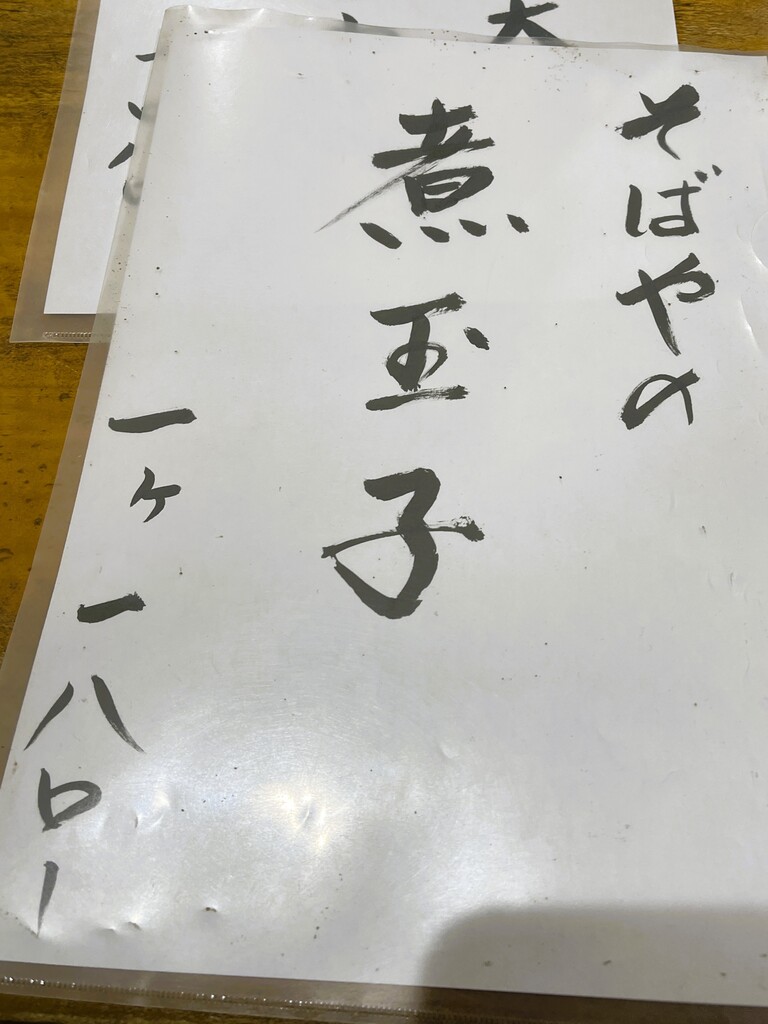 そばやの
煮玉子
一ヶ一八〇ー
大